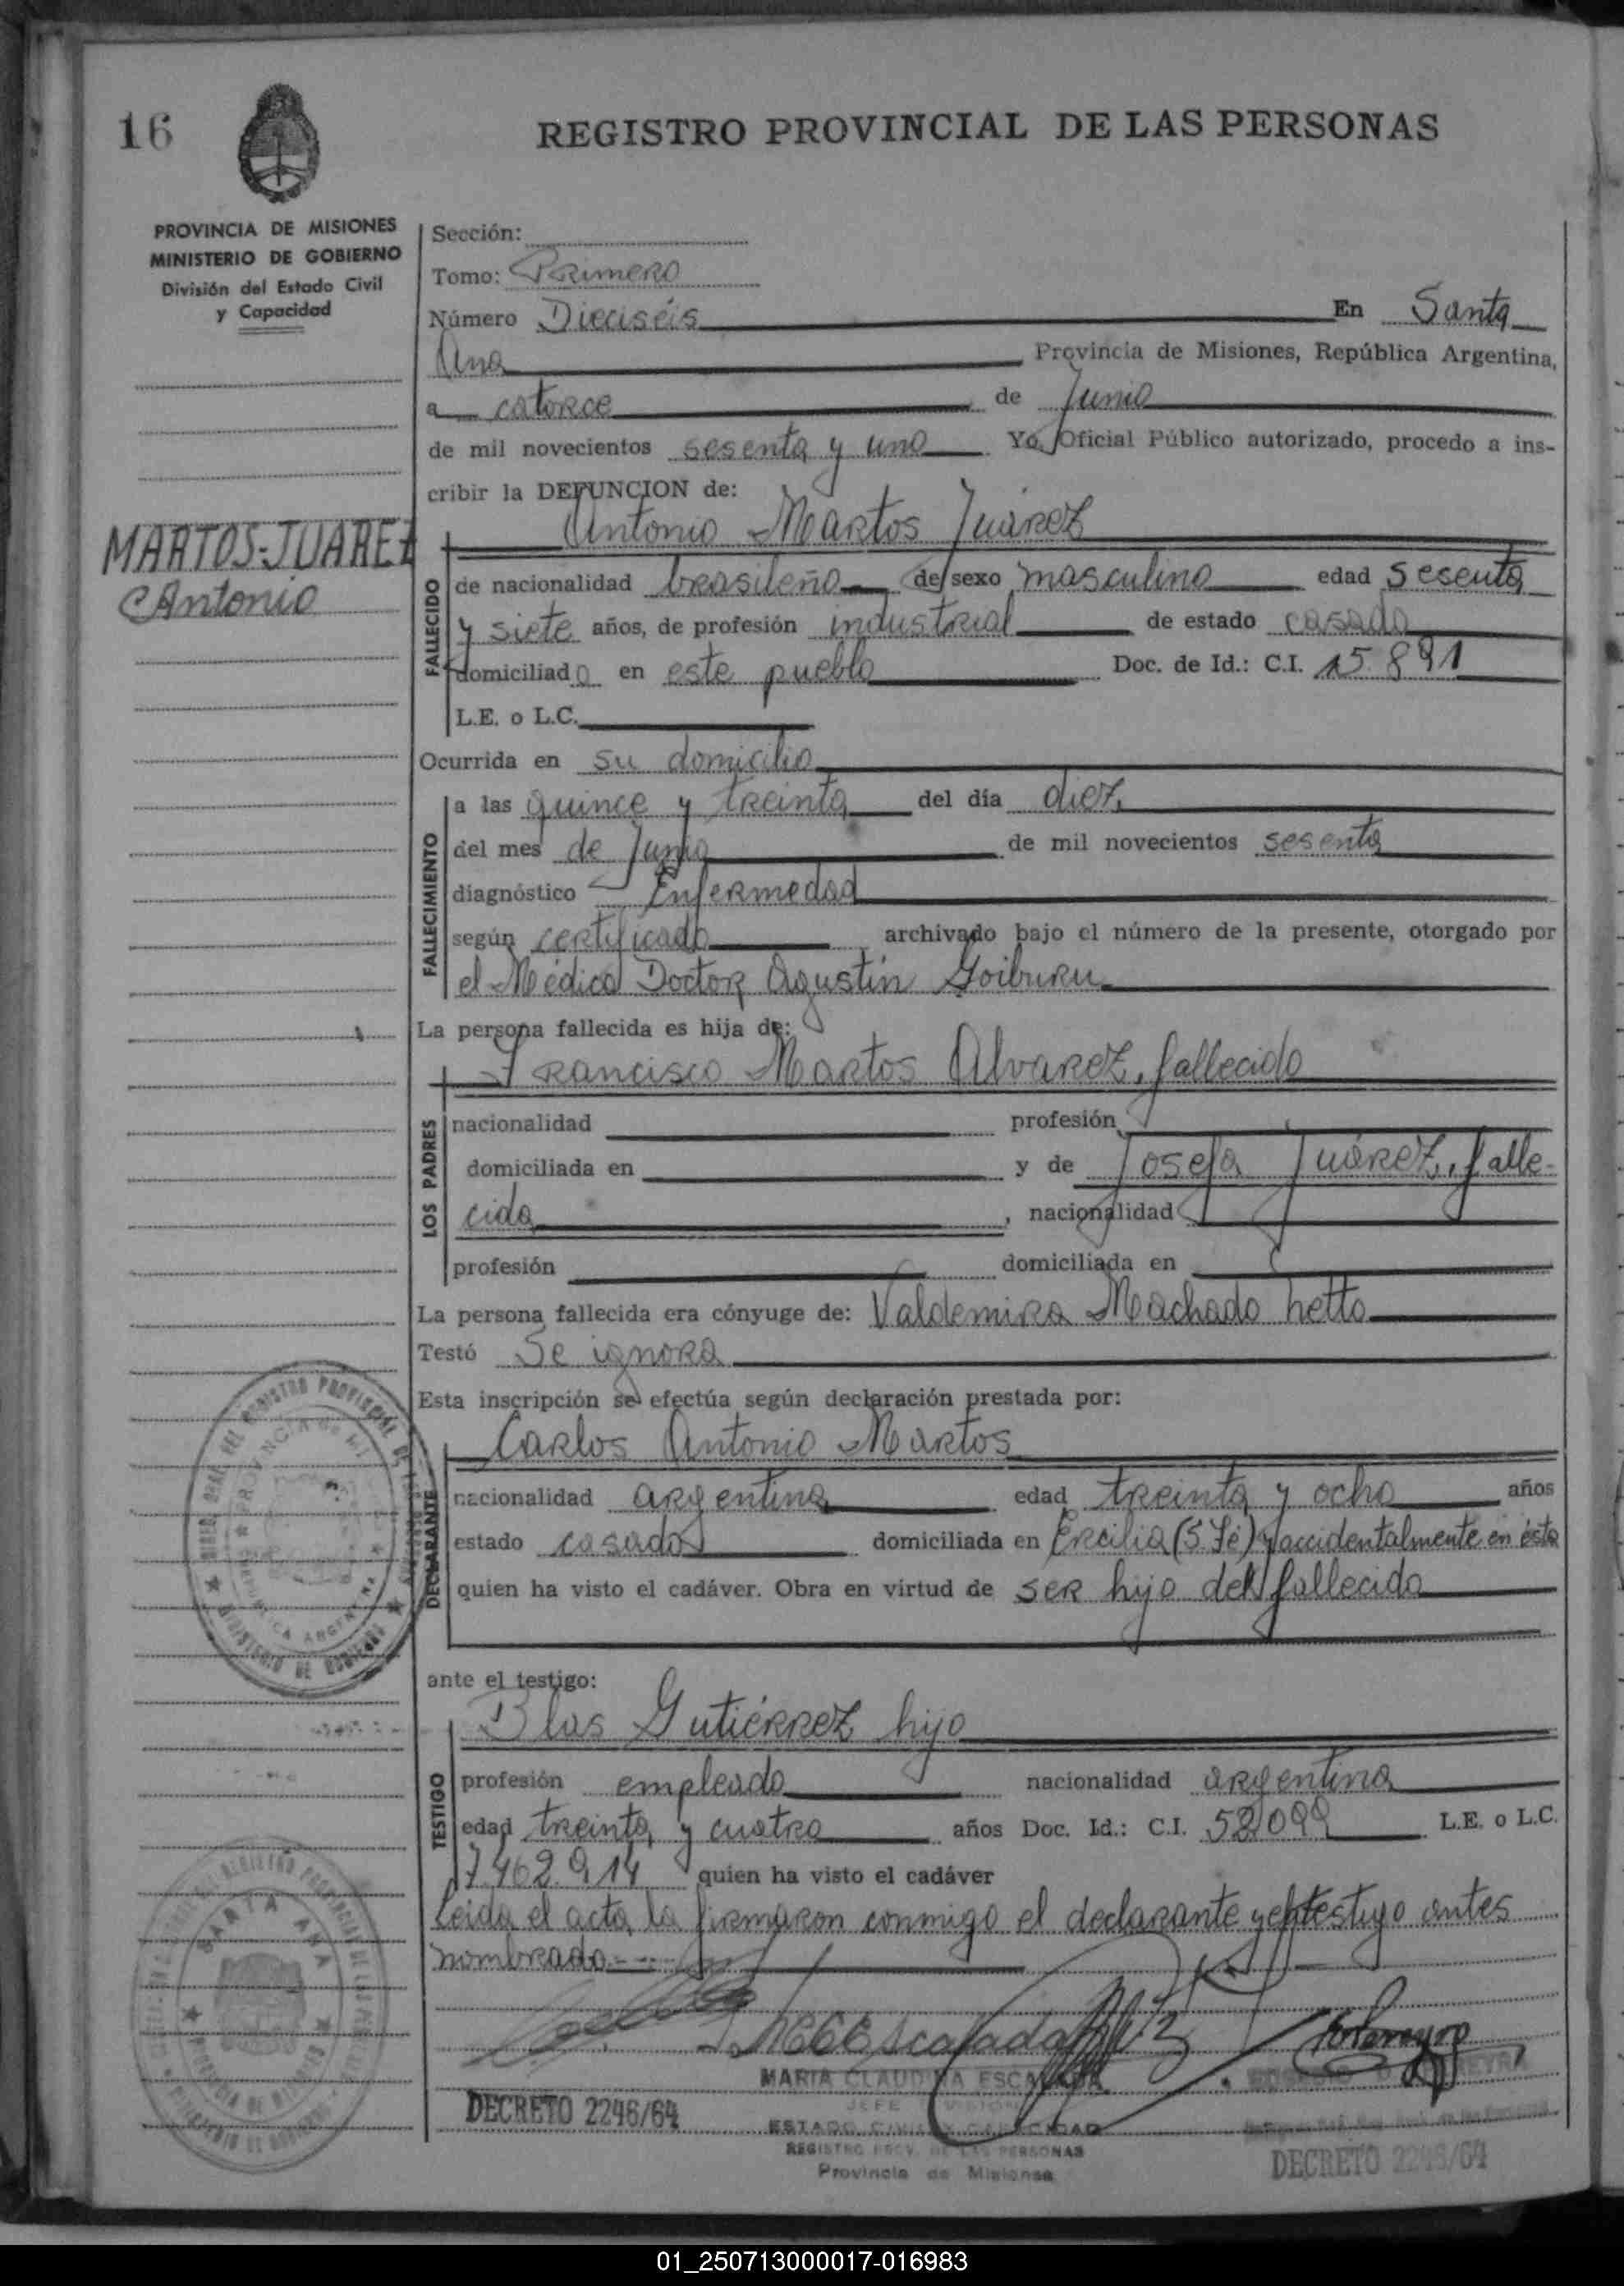 16
REGISTRO PROVINCIAL DE LAS PERSONAS
PROVINCIA DE MISIONES
MINISTERIO DE GOBIERNO
División del Estado Civil
y Capacidad
MARTOS-JUAREZ
Antonio
Sección:
Tomo: Primero
Número Dieciséis En Santa
Ana Provincia de Misiones, República Argentina,
a catorce de Junio
de mil novecientos sesenta y uno Yo, Oficial Público autorizado, procedo a ins-
cribir la DEFUNCION de:
Antonio Martos Juárez
FALLECIDO
de nacionalidad brasileña de sexo masculino edad sesenta
y siete años, de profesión industrial de estado casado
domiciliado en este pueblo Doc. de Id.: C.I. 15.891
L.E. o L.C.
Ocurrida en su domicilio
FALLECIMIENTO
a las quince y treinta del día diez
del mes de Junio de mil novecientos sesenta
diagnóstico Enfermedad
según certificado archivado bajo el número de la presente, otorgado por
el Médico Doctor Agustín Goiburu
La persona fallecida es hija de:
Francisco Martos Alvarez, fallecido
LOS PADRES
nacionalidad profesión
domiciliada en y de Josefa Juárez, falle-
cida , nacionalidad
profesión domiciliada en
La persona fallecida era cónyuge de: Valdemira Machado Netto
Testó Se ignora
Esta inscripción se efectúa según declaración prestada por:
Carlos Antonio Martos
DECLARANTE
nacionalidad argentina edad treinta y ocho años
estado casado domiciliada en Ercilia (S. Fé) y accidentalmente en ésta
quien ha visto el cadáver. Obra en virtud de ser hijo del fallecido
ante el testigo:
Blas Gutiérrez hijo
TESTIGO
profesión empleado nacionalidad argentina
edad treinta y cuatro años Doc. Id.: C.I. 52099 L.E. o L.C.
7.462.914 quien ha visto el cadáver
Leída el acta, la firmaron conmigo el declarante y el testigo antes
nombrado
MARIA CLAUDINA ESCALADA
JEFE DIVISION
ESTADO CIVIL Y CAPACIDAD
REGISTRO PROV. DE LAS PERSONAS
Provincia de Misiones
DECRETO 2246/64
DECRETO 2246/64
SANTA ANA
PROVINCIA DE MISIONES
01_250713000017-016983